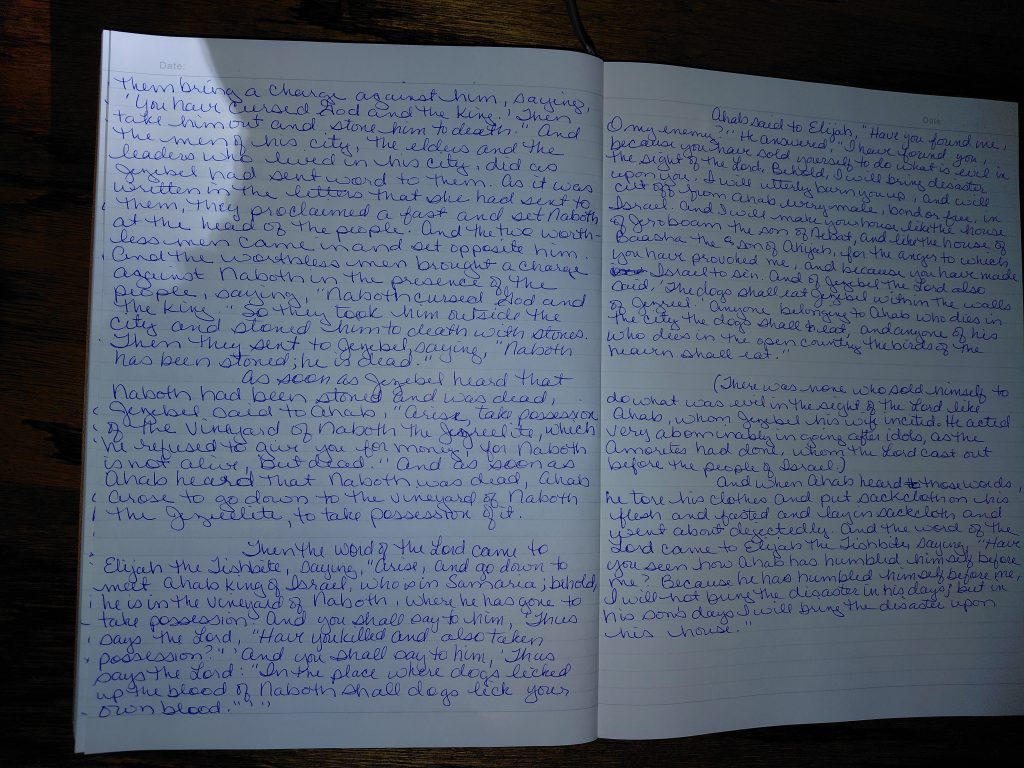 Date:
them bring a charge against him, saying,
'You have cursed God and the king.' Then
take him out and stone him to death." And
the men of his city, the elders and the
leaders who lived in his city, did as
Jezebel had sent word to them. As it was
written in the letters that she had sent to
them, they proclaimed a fast and set Naboth
at the head of the people. And the two worth-
less men came in and set opposite him.
And the worthless men brought a charge
against Naboth in the presence of the
people, saying, "Naboth cursed God and
the king." So they took him outside the
city and stoned him to death with stones.
Then they sent to Jezebel, saying, "Naboth
has been stoned; he is dead."
As soon as Jezebel heard that
Naboth had been stoned and was dead,
Jezebel said to Ahab, "Arise, take possession
of the vineyard of Naboth the Jezreelite, which
he refused to give you for money, for Naboth
is not alive, but dead." And as soon as
Ahab heard that Naboth was dead, Ahab
arose to go down to the vineyard of Naboth
the Jezreelite, to take possession of it.
Then the word of the Lord came to
Elijah the Tishbite, saying, "Arise, and go down to
meet Ahab king of Israel, who is in Samaria; behold,
he is in the vineyard of Naboth, where he has gone to
take possession. And you shall say to him, "Thus
says the Lord, "Have you killed and also taken
possession?"' And you shall say to him, 'Thus
says the Lord: "In the place where dogs licked
up the blood of Naboth shall dogs lick your
own blood."'"
Date:
Ahab said to Elijah, "Have you found me,
O my enemy?" He answered "I have found you,
because you have sold yourself to do what is evil in
the sight of the Lord. Behold, I will bring disaster
upon you. I will utterly burn you up, and will
cut off from Ahab every male, bond or free, in
Israel. And I will make your house like the house
of Jeroboam the son of Nebat, and like the house of
Baasha the son of Ahijah, for the anger to which
you have provoked me, and because you have made
Israel to sin. And of Jezebel the Lord also
said, 'The dogs shall eat Jezebel within the walls
of Jezreel.' Anyone belonging to Ahab who dies in
the city the dogs shall eat, and anyone of his
who dies in the open country the birds of the
heavn shall eat."
(There was none who sold himself to
do what was evil in the sight of the Lord like
Ahab, whom Jezebel his wife incited. He acted
very abominably in going after idols, as the
Amorites had done, whom the Lord cast out
before the people of Israel.)
And when Ahab heard those words,
he tore his clothes and put sackcloth on his
flesh and fasted and lay in sackcloth and
went about dejectedly. And the word of the
Lord came to Elijah the Tishbite, saying, "Have
you seen how Ahab has humbled himself before
me? Because he has humbled himself before me,
I will not bring the disaster in his days; but in
his sons days I will bring the disaster upon
his house."